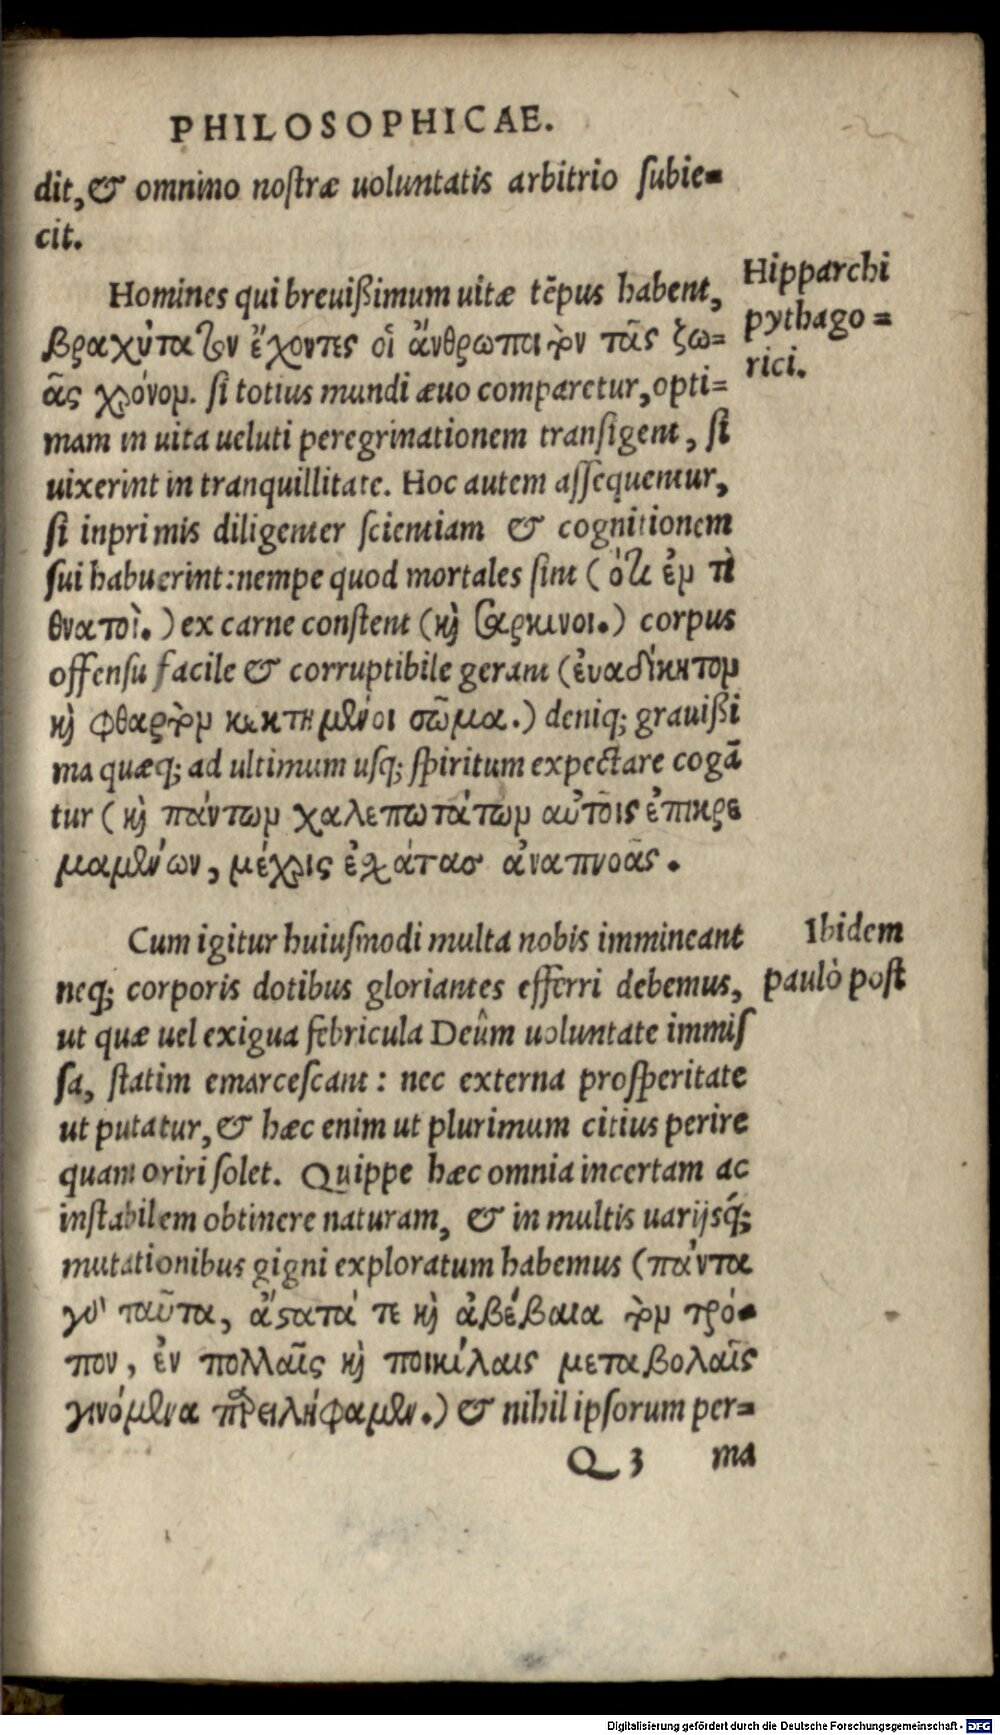 PHILOSOPHICAE.
dit, & omnino nostræ uoluntatis arbitrio subie=
cit.
Homines qui breuißimum uitæ tēpus habent,
Hipparchi
pythago=
rici.
βραχύτατον ἔχοντες οἱ ἄνθρωποι τὸν τᾶς ζω=
ᾶς χρόνον. si totius mundi æuo comparetur, opti=
mam in uita ueluti peregrinationem transigent, si
uixerint in tranquillitate. Hoc autem assequentur,
si inprimis diligenter scientiam & cognitionem
sui habuerint: nempe quod mortales sint (ὅτι ἐν τὶ
θνατοὶ.) ex carne constent (κỳ σαρκινοι.) corpus
offensu facile & corruptibile gerant (ἐυαδίκητον
κỳ φθαρτὸν κεκτημένοι σῶμα.) deniq; grauißi
ma quæq; ad ultimum usq; spiritum expectare cogā
tur (κỳ πάντων χαλεπωτάτων αὐτοῖς ἐπικρε
μαμένων, μέχρις ἐχάτασ ἀναπνοᾶς.
Cum igitur huiusmodi multa nobis immineant
Ibidem
paulò post
neq; corporis dotibus gloriantes efferri debemus,
ut quæ uel exigua febricula Deûm uoluntate immis
sa, statim emarcescant: nec externa prosperitate
ut putatur, & hæc enim ut plurimum citius perire
quam oriri solet. Quippe hæc omnia incertam ac
instabilem obtinere naturam, & in multis uarijsq́;
mutationibus gigni exploratum habemus (πάντα
γὰ ταῦτα, ἄστατά τε κỳ ἀβέβαια τὸν τρό=
πον, ἐν πολλαῖς κỳ ποικίλαις μεταβολαῖς
γινόμενα παρειλήφαμεν.) & nihil ipsorum per=
Q 3 ma
Digitalisierung gefördert durch die Deutsche Forschungsgemeinschaft - DFG